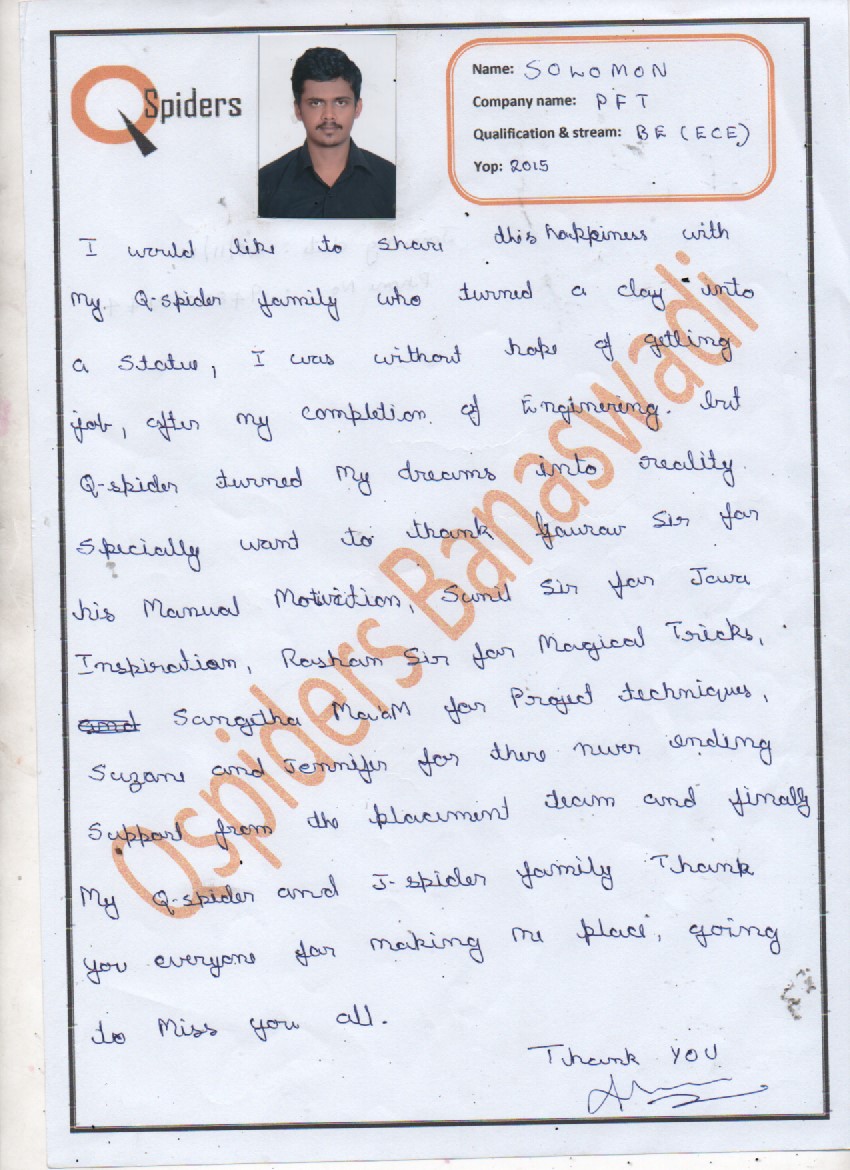 Spiders
Name: SOLOMON
Company name: PFT
Qualification & stream: BE (ECE)
Yop: 2015
I would like to share this happiness with
my Q-spider family who turned a clay into
a statue, I was without hope of getting
job, after my completion of Enginering. but
Q-spider turned my dreams into reality
Specially want to thank Gaurav Sir for
his Manual Motivation, Sunil Sir for Java
Inspiration, Roshan Sir for Magical Tricks,
and Sangitha Ma'am for Project techniques,
Suzane and Jennifer for there never ending
Support from the placement team and finally
My Q-spider and J-spider family Thank
you everyone for making me place, going
to miss you all.
Thank YOU
Qspiders Banaswadi